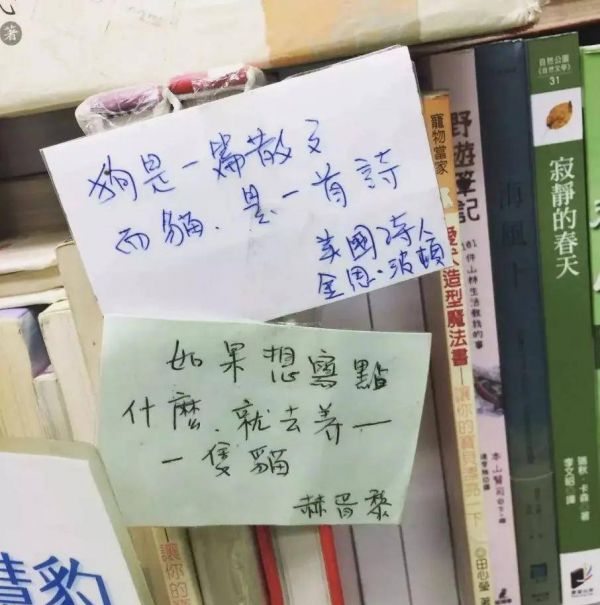 著
狗是一篇散文
而貓、是一首詩
美國詩人
金恩·波頓
如果想寫點
什麼、就去养一
一隻貓
赫胥黎
寵物當家
造型魔法書
讓你的寶貝漂亮一下
田心瑩 著
野遊筆記
101件山林生活教我的事
本山賢司
海風下
自然公園
31
寂靜的春天
瑞秋·卡森 著
李文昭 譯
讓你的
豹